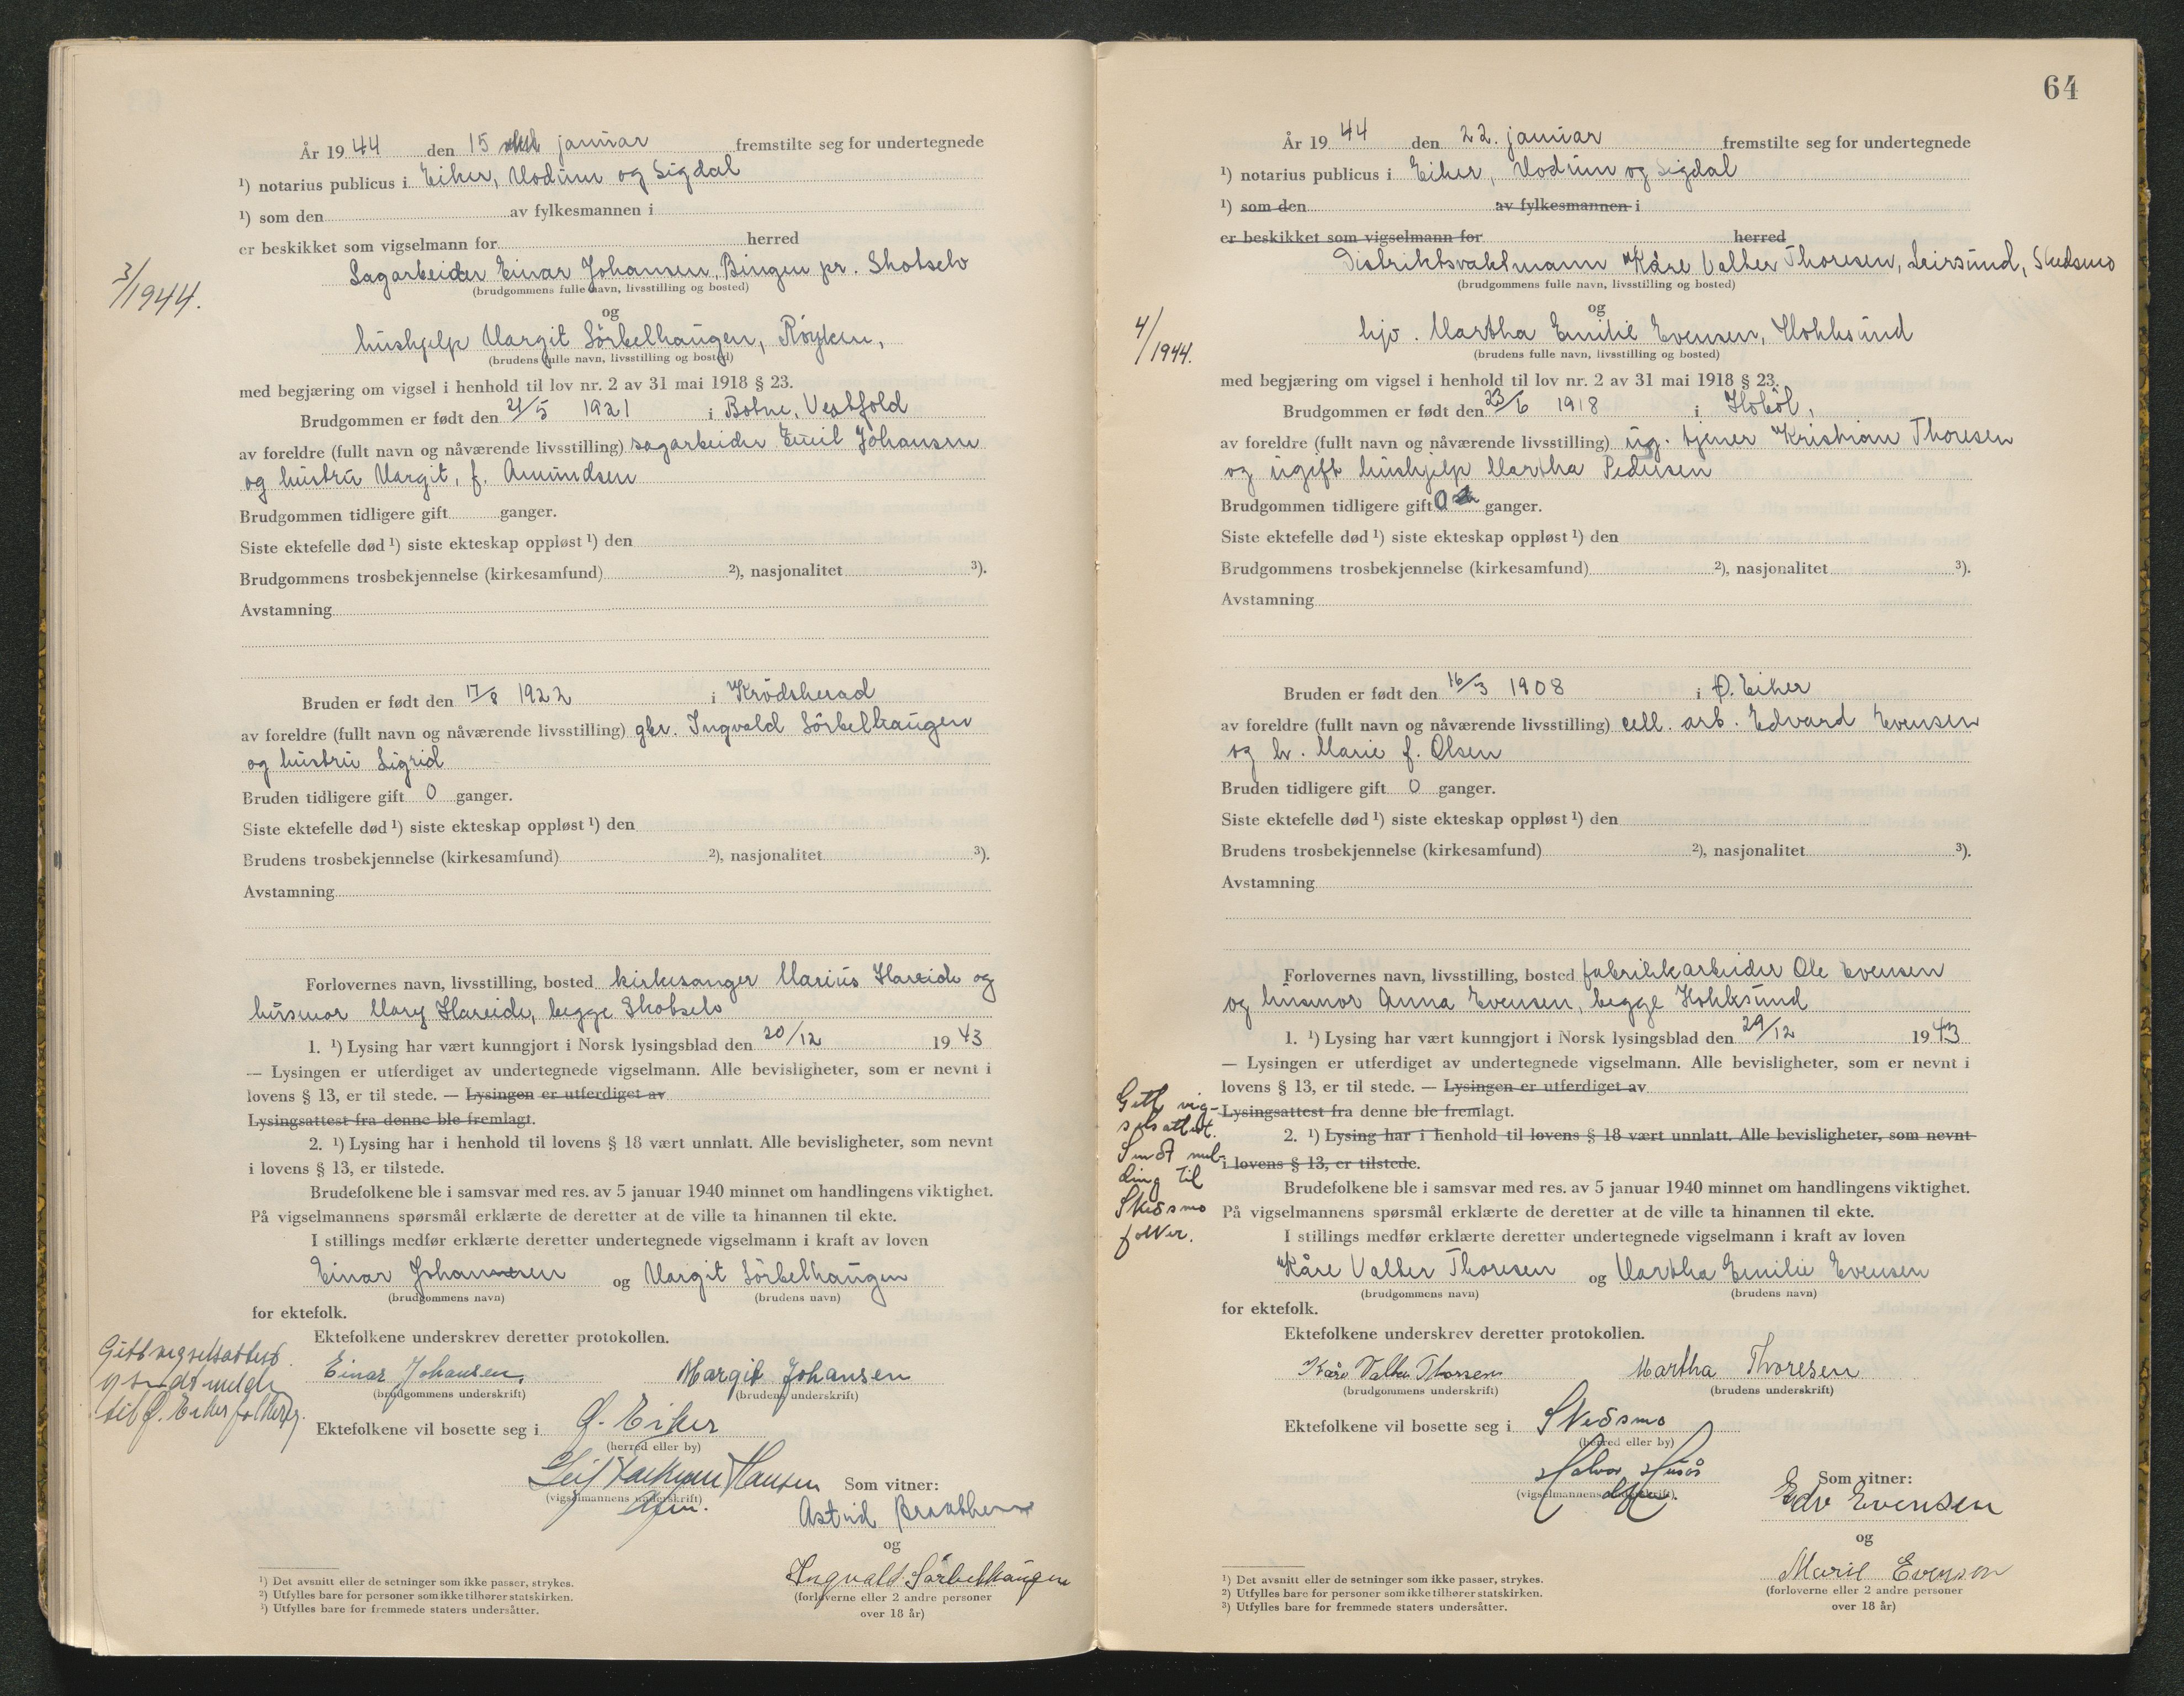 År 1944 den 15 januar fremstilte seg for undertegnede
¹) notarius publicus i Eiker, Modum og Sigdal
¹) som den av fylkesmannen i
er beskikket som vigselmann for herred
3/1944.
Sagarbeider Einar Johansen, Bingen pr. Skotselv
(brudgommens fulle navn, livsstilling og bosted)
og
hushjelp Margit Sörbelhaugen, Röyken,
(brudens fulle navn, livsstilling og bosted)
med begjæring om vigsel i henhold til lov nr. 2 av 31 mai 1918 § 23.
Brudgommen er født den 21/5 1921 i Botne, Vestfold
av foreldre (fullt navn og nåværende livsstilling) sagarbeider Emil Johansen
og hustru Margit, f. Amundsen
Brudgommen tidligere gift ganger.
Siste ektefelle død ¹) siste ekteskap oppløst ¹) den
Brudgommens trosbekjennelse (kirkesamfund) ²), nasjonalitet ³).
Avstamning
Bruden er født den 17/8 1922 i Krödsherad
av foreldre (fullt navn og nåværende livsstilling) gbr. Ingvald Sörbelhaugen
og hustru Sigrid
Bruden tidligere gift 0 ganger.
Siste ektefelle død ¹) siste ekteskap oppløst ¹) den
Brudens trosbekjennelse (kirkesamfund) ²), nasjonalitet ³).
Avstamning
Forlovernes navn, livsstilling, bosted kirkesanger Marius Hareide og
husmor Mary Hareide, begge Skotselv
1. ¹) Lysing har vært kunngjort i Norsk lysingsblad den 20/12 1943
— Lysingen er utferdiget av undertegnede vigselmann. Alle bevisligheter, som er nevnt i
lovens § 13, er til stede. — Lysingen er utferdiget av
Lysingsattest fra denne ble fremlagt.
2. ¹) Lysing har i henhold til lovens § 18 vært unnlatt. Alle bevisligheter, som nevnt
i lovens § 13, er tilstede.
Brudefolkene ble i samsvar med res. av 5 januar 1940 minnet om handlingens viktighet.
På vigselmannens spørsmål erklærte de deretter at de ville ta hinannen til ekte.
I stillings medfør erklærte deretter undertegnede vigselmann i kraft av loven
Einar Johansen og Margit Sörbelhaugen
(brudgommens navn) (brudens navn)
for ektefolk.
Ektefolkene underskrev deretter protokollen.
Gitt vigselsattest
og sendt melde
til Ø. Eiker folkereg.
Einar Johansen. Margit Johansen
(brudgommens underskrift) (brudens underskrift)
Ektefolkene vil bosette seg i Ø. Eiker
(herred eller by)
Leif Hansen Som vitner:
(vigselmannens underskrift)
Astrid Braathen
og
Ingvald Sörbelhaugen
(forloverne eller 2 andre personer
over 18 år)
¹) Det avsnitt eller de setninger som ikke passer, strykes.
²) Utfylles bare for personer som ikke tilhører statskirken.
³) Utfylles bare for fremmede staters undersåtter.
64
År 1944 den 22. januar fremstilte seg for undertegnede
¹) notarius publicus i Eiker, Modum og Sigdal
¹) som den av fylkesmannen i
er beskikket som vigselmann for herred
Distriktsvaktmann Kåre Valter Thoresen, Leirsund, Skedsmo
(brudgommens fulle navn, livsstilling og bosted)
og
4/1944.
hjv. Martha Emilie Evensen, Hokksund
(brudens fulle navn, livsstilling og bosted)
med begjæring om vigsel i henhold til lov nr. 2 av 31 mai 1918 § 23.
Brudgommen er født den 23/6 1918 i Hobøl,
av foreldre (fullt navn og nåværende livsstilling) ug. tjener Kristian Thoresen
og ugift hushjelp Martha Pedersen
Brudgommen tidligere gift 0 ganger.
Siste ektefelle død ¹) siste ekteskap oppløst ¹) den
Brudgommens trosbekjennelse (kirkesamfund) ²), nasjonalitet ³).
Avstamning
Bruden er født den 16/3 1908 i Ø. Eiker
av foreldre (fullt navn og nåværende livsstilling) cell. arb. Edvard Evensen
og h. Marie f. Olsen
Bruden tidligere gift 0 ganger.
Siste ektefelle død ¹) siste ekteskap oppløst ¹) den
Brudens trosbekjennelse (kirkesamfund) ²), nasjonalitet ³).
Avstamning
Forlovernes navn, livsstilling, bosted fabrikkarbeider Ole Evensen
og husmor Anna Evensen, begge Hokksund
1. ¹) Lysing har vært kunngjort i Norsk lysingsblad den 29/12 1943
— Lysingen er utferdiget av undertegnede vigselmann. Alle bevisligheter, som er nevnt i
lovens § 13, er til stede. — Lysingen er utferdiget av
Lysingsattest fra denne ble fremlagt.
2. ¹) Lysing har i henhold til lovens § 18 vært unnlatt. Alle bevisligheter, som nevnt
i lovens § 13, er tilstede.
Gitt vig-
selsattest.
Sendt mel-
ding til
Skedsmo
folker.
Brudefolkene ble i samsvar med res. av 5 januar 1940 minnet om handlingens viktighet.
På vigselmannens spørsmål erklærte de deretter at de ville ta hinannen til ekte.
I stillings medfør erklærte deretter undertegnede vigselmann i kraft av loven
Kåre Valter Thoresen og Martha Emilie Evensen
(brudgommens navn) (brudens navn)
for ektefolk.
Ektefolkene underskrev deretter protokollen.
Kåre Valter Thoresen Martha Thoresen
(brudgommens underskrift) (brudens underskrift)
Ektefolkene vil bosette seg i Skedsmo
(herred eller by)
Halvor Som vitner:
(vigselmannens underskrift).
Edv Evensen
og
Marie Evensen
(forloverne eller 2 andre personer
over 18 år)
¹) Det avsnitt eller de setninger som ikke passer, strykes.
²) Utfylles bare for personer som ikke tilhører statskirken.
³) Utfylles bare for fremmede staters undersåtter.